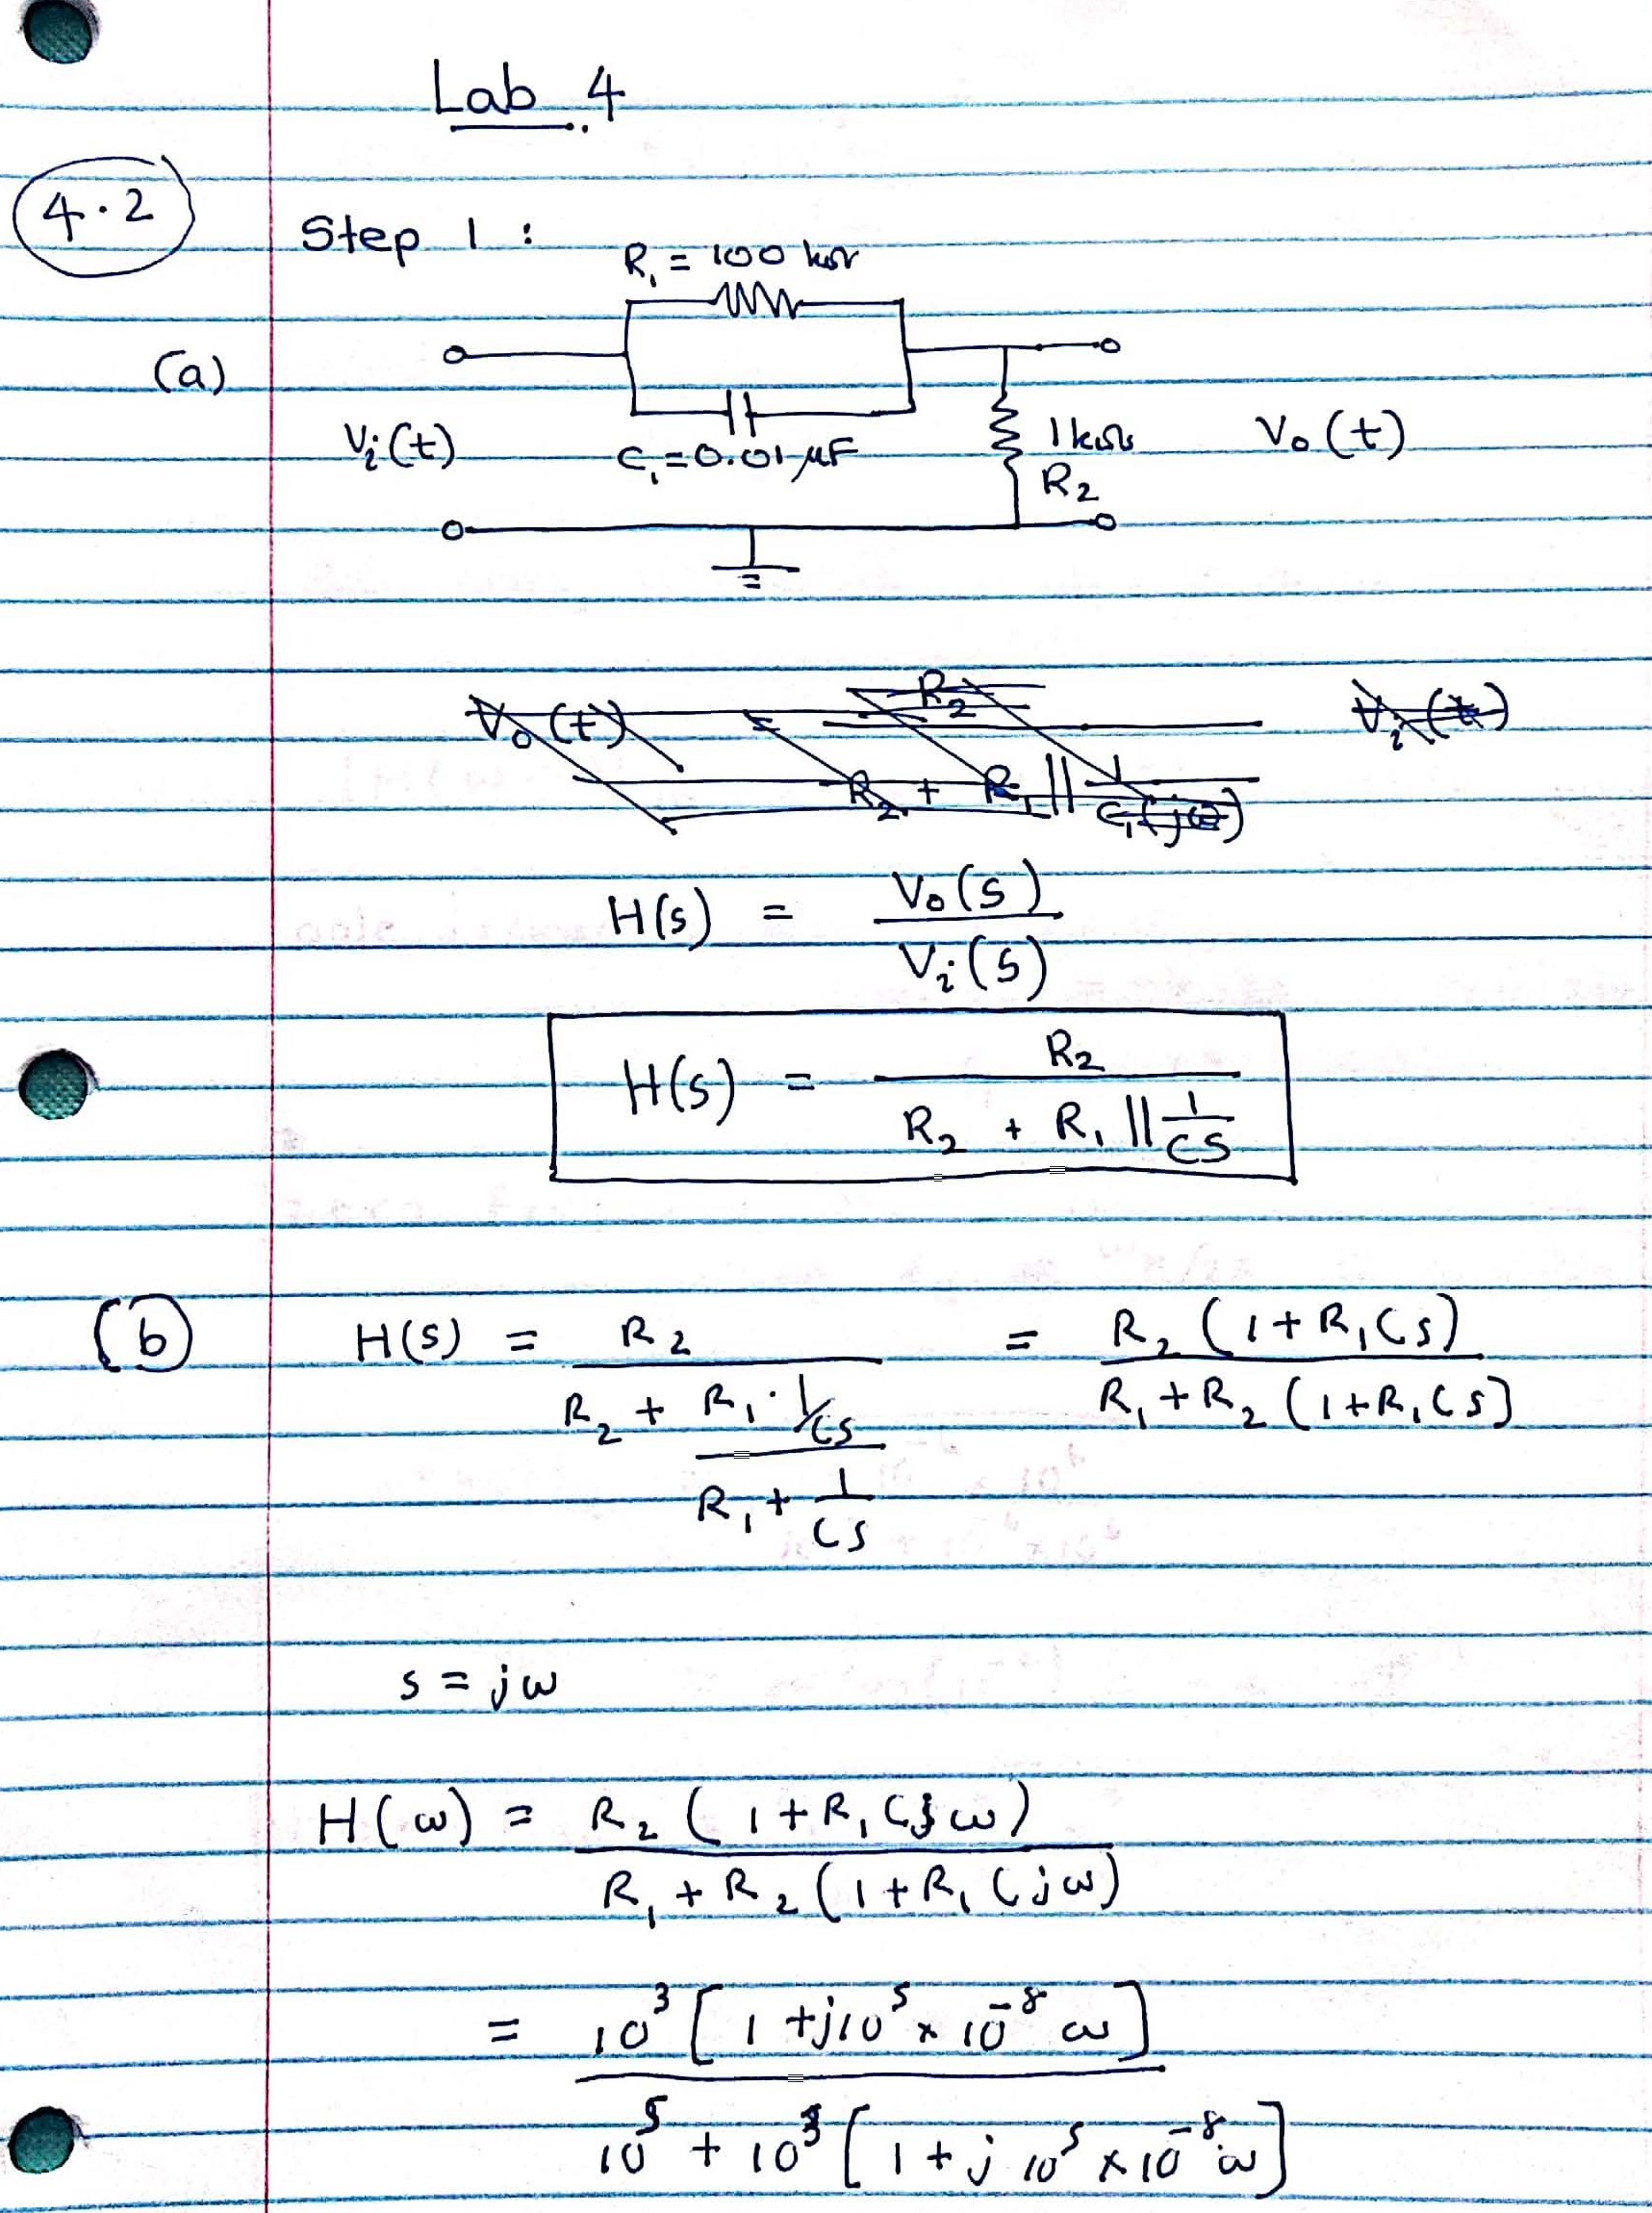 Lab 4
4.2 Step 1 :
R₁ = 100 kΩ
(a)
Vi(t) C₁=0.01 μF 1kΩ V₀(t)
R₂
V₀(t) = R₂ Vi(t)
R₂ + R₁ || 1/C₁(jω)
H(s) = V₀(s) / Vi(s)
H(s) = R₂ / (R₂ + R₁ || 1/CS)
(b) H(s) = R₂ / (R₂ + (R₁ · 1/CS) / (R₁ + 1/CS)) = R₂ (1+R₁Cs) / (R₁ + R₂ (1+R₁Cs))
s = jω
H(ω) = R₂ (1+R₁Cjω) / (R₁ + R₂ (1+R₁Cjω))
= 10³ [1 + j10⁵ × 10⁻⁸ ω] / (10⁵ + 10³ [1 + j 10⁵ × 10⁻⁸ ω])